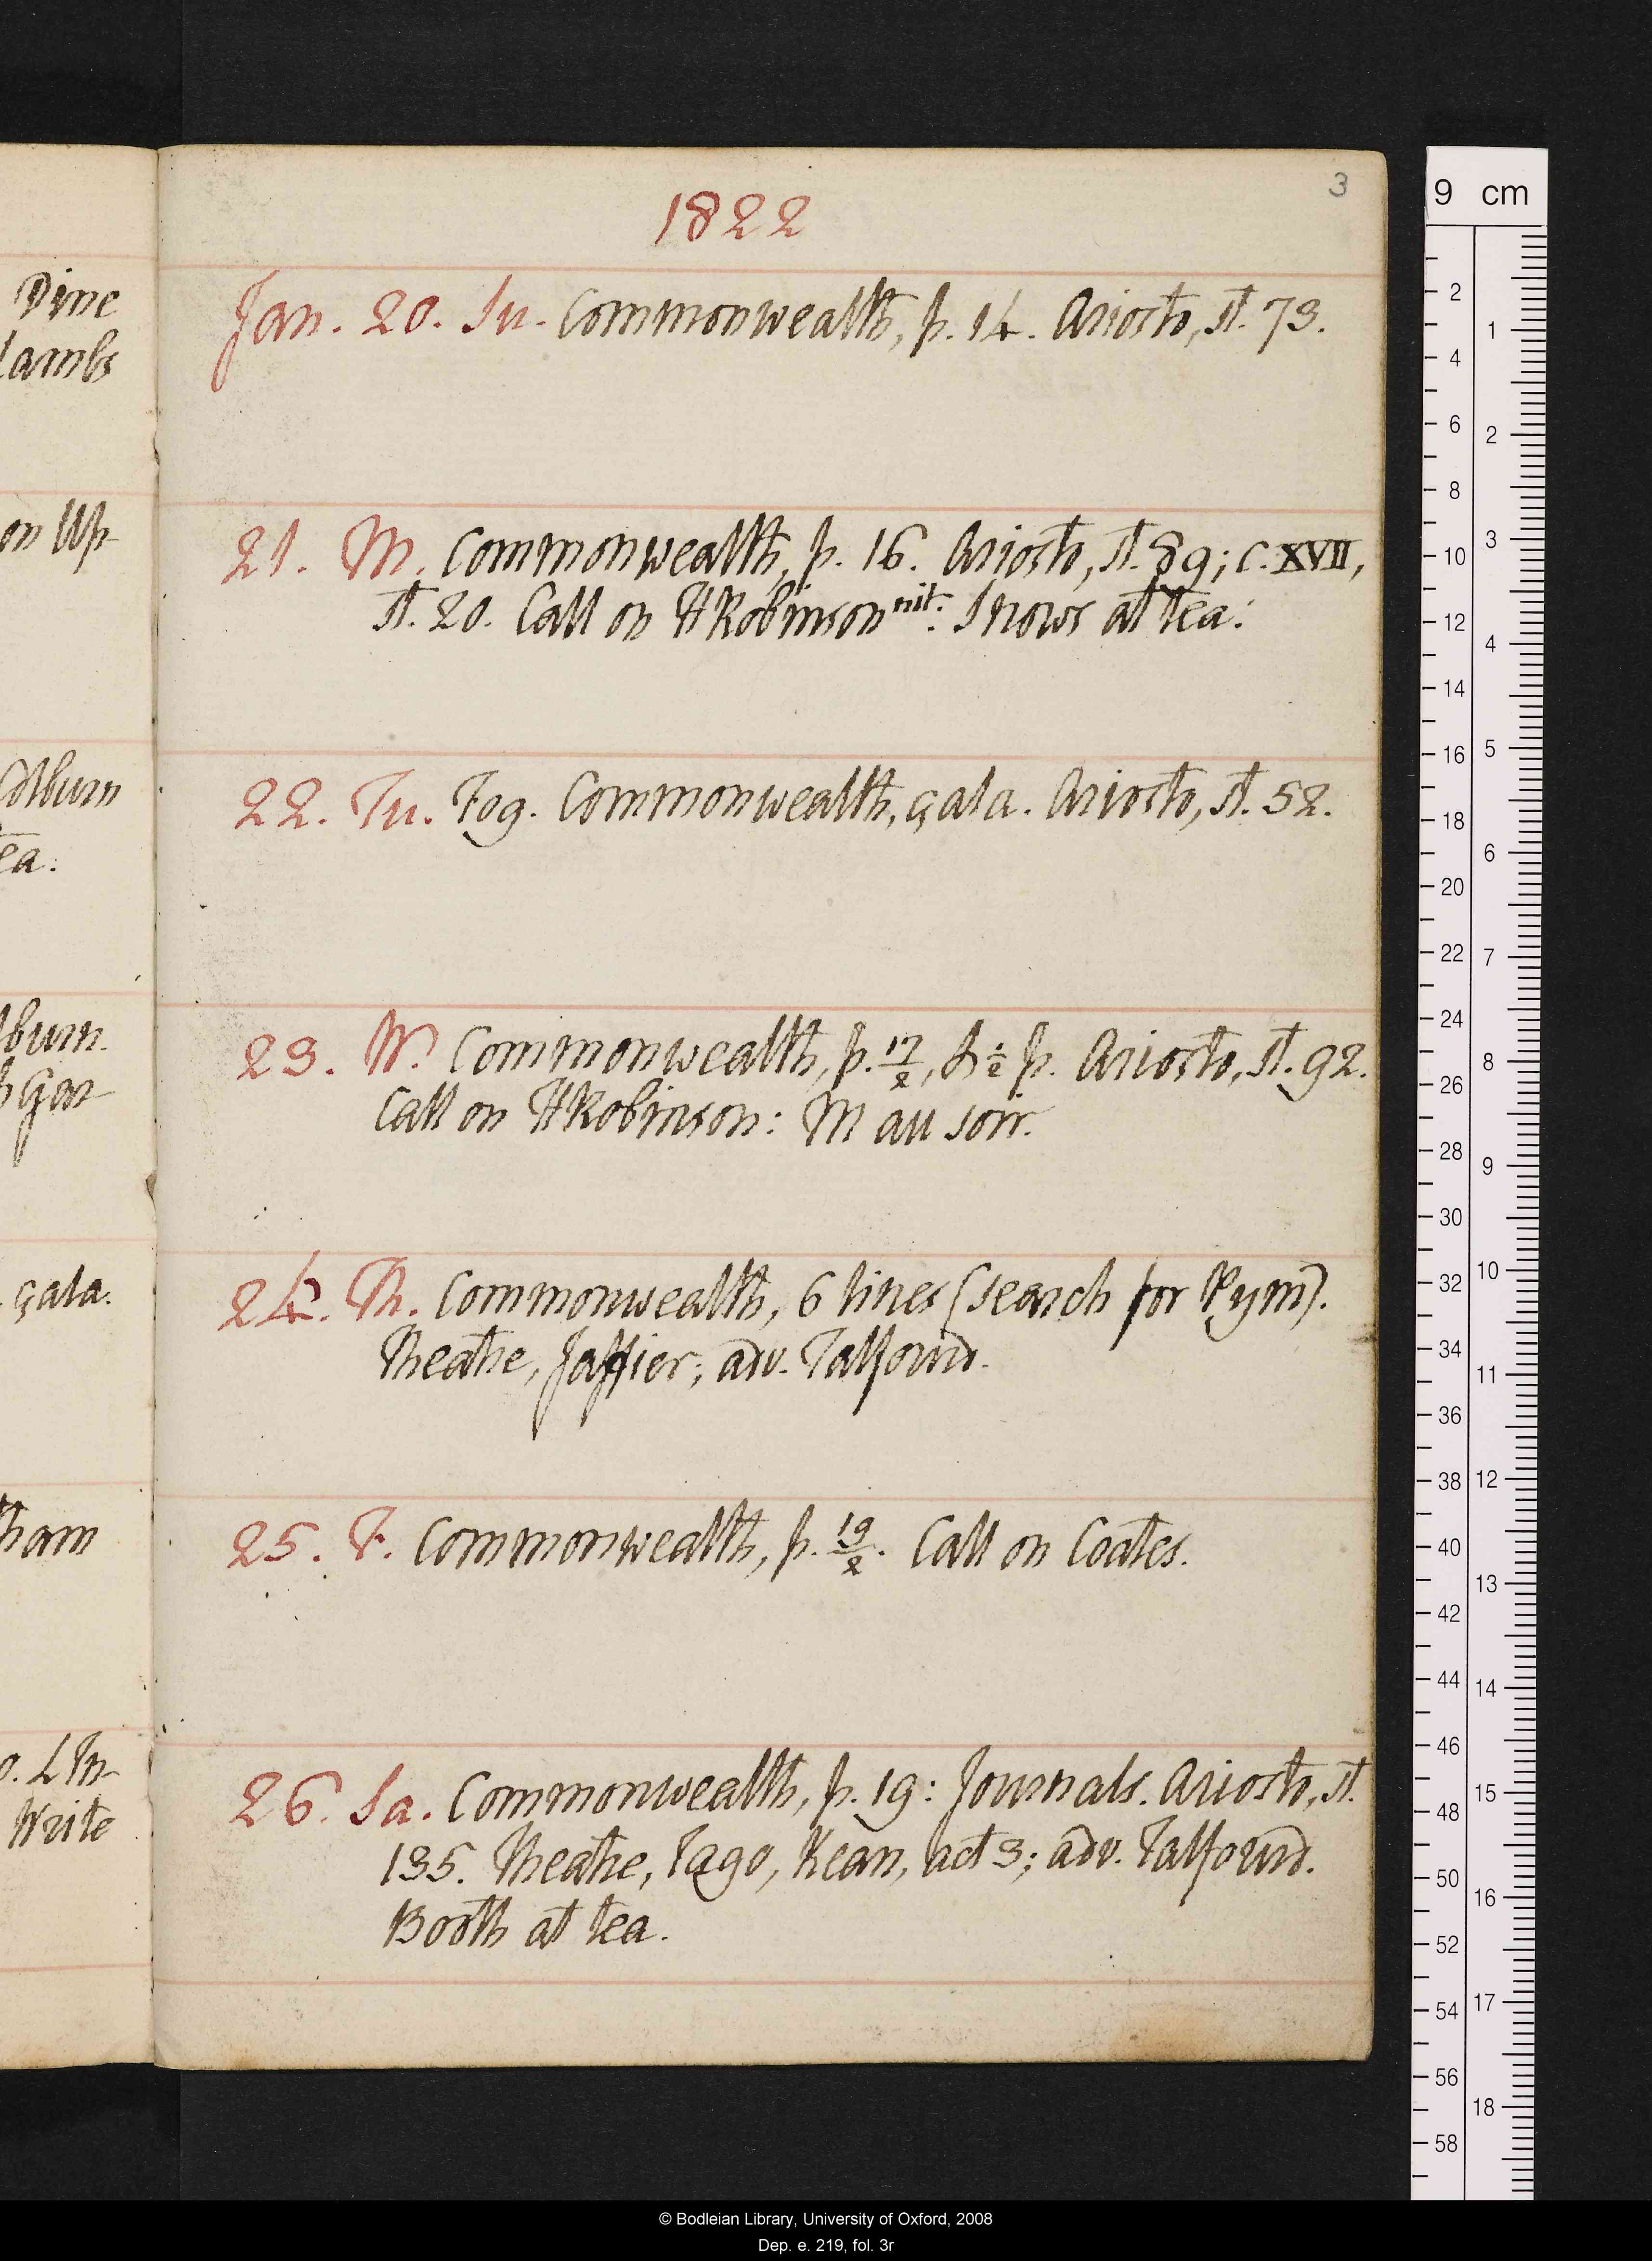 3
1822
Jan. 20. Su. Commonwealth, p. 14. Ariosto, st. 73.
21. M. Commonwealth, p. 16. Ariosto, st. 89; c. XVII,
st. 20. Call on HRobinson nit. Snows at tea.
22. Tu. Fog. Commonwealth, çala. Ariosto, st. 52.
23. W. Commonwealth, p. 17/2, & ÷ p. Ariosto, st. 92.
Call on HRobinson: M au soir.
24. Th. Commonwealth, 6 lines (search for Pym).
Theatre, Jaffier; adv. Talfourd.
25. F. Commonwealth, p. 19/2. Call on Coates.
26. Sa. Commonwealth, p. 19: Journals. Ariosto, st.
135. Theatre, Iago, Kean, act 3; adv. Talfourd.
Booth at tea.
Dine
Lambs
on Up-
Colburn
ea.
lburn.
çala.
ham
Write
9 cm
2
4
6
8
10
12
14
16
18
20
22
24
26
28
30
32
34
36
38
40
42
44
46
48
50
52
54
56
58
1
2
3
4
5
6
7
8
9
10
11
12
13
14
15
16
17
18
© Bodleian Library, University of Oxford, 2008
Dep. e. 219, fol. 3r